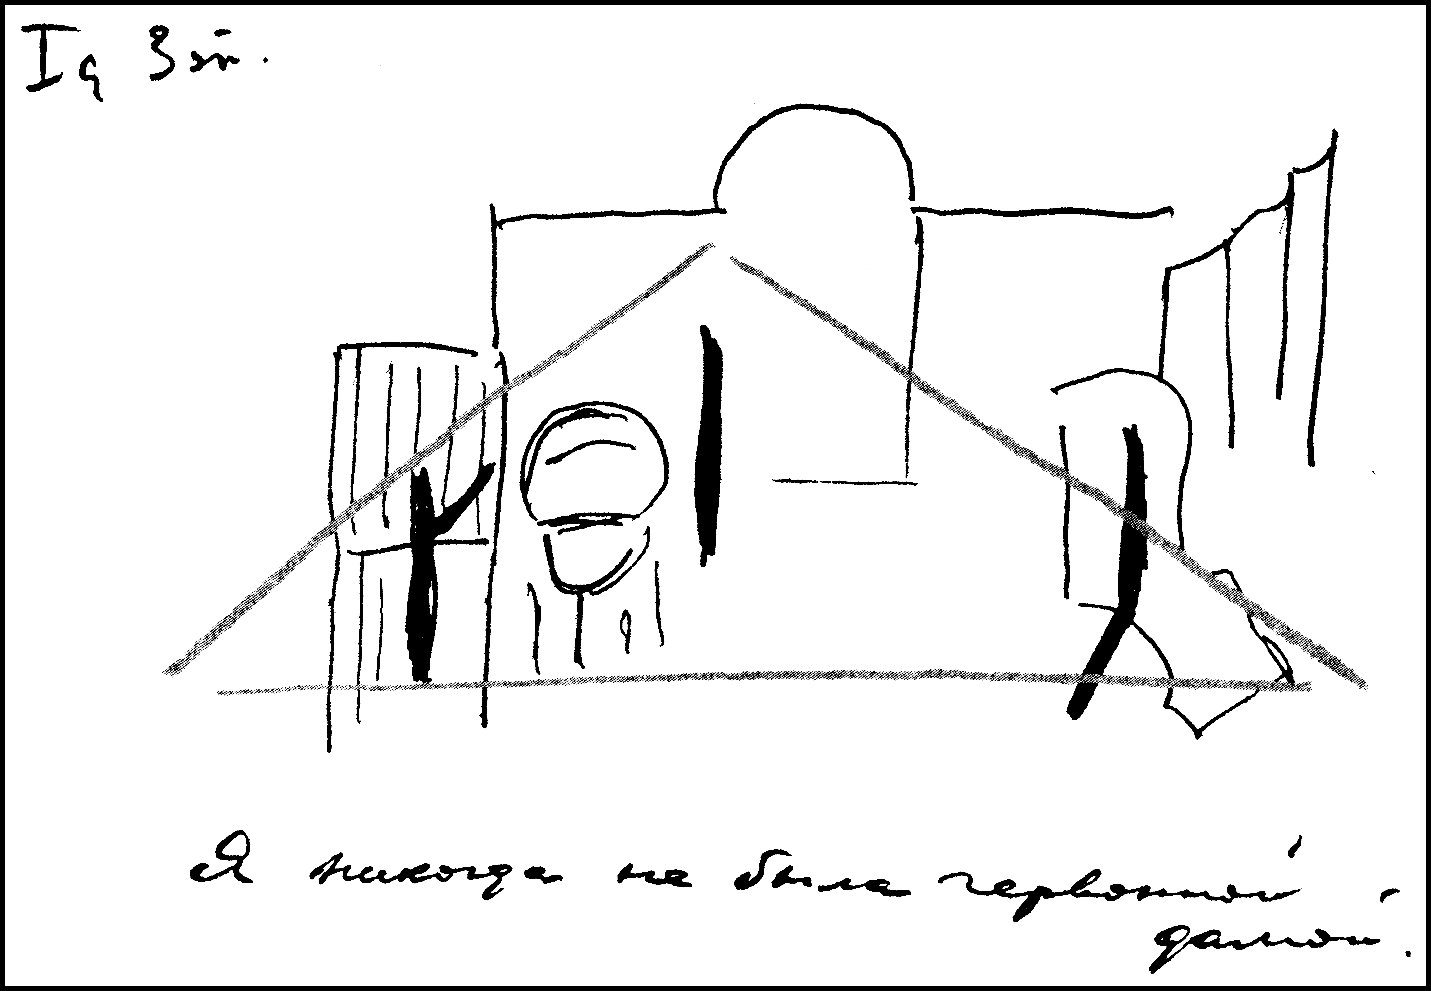 I д 3 эп.
Я никогда не была червонной
дамой.